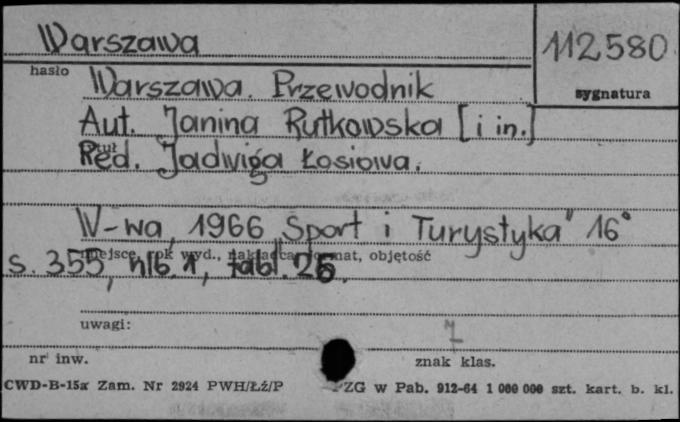 Warszawa
112580
hasło
sygnatura
Warszawa. Przewodnik
Aut. Janina Rutkowska [i in.]
tytuł
Red. Jadwiga Łosiowa.
W-wa, 1966 „Sport i Turystyka" 16°
miejsce, rok wyd., nakładca, format, objętość
s. 355, nlb. 1, tabl. 26.
uwagi:
nr inw.
znak klas.
CWD-B-15a Zam. Nr 2924 PWH/Łź/P PZG w Pab. 912-64 1 000 000 szt. kart. b. kl.